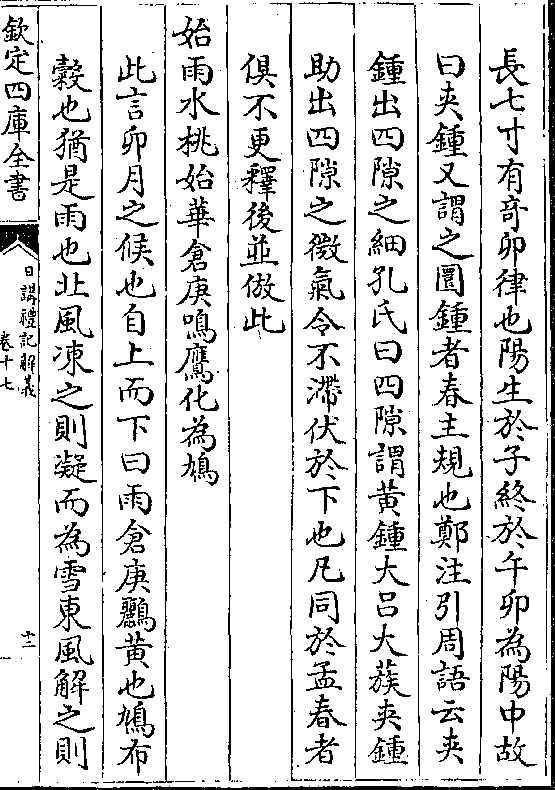 長七寸有奇卯律也陽生於子終於午卯為陽中故
曰夾鍾又謂之圜鍾者春主規也鄭注引周語云夾
鍾出四隙之細孔氏曰四隙謂黃鍾大呂大蔟夾鍾
助出四隙之微氣令不滯伏於下也凡同於孟春者
俱不更釋後並倣此
始雨水桃始華倉庚鳴鷹化為鳩
此言卯月之候也自上而下曰雨倉庚鸝黃也鳩布
穀也猶是雨也北風凍之則凝而為雪東風解之則
欽定四庫全書
日講禮記解義
卷十七
十二